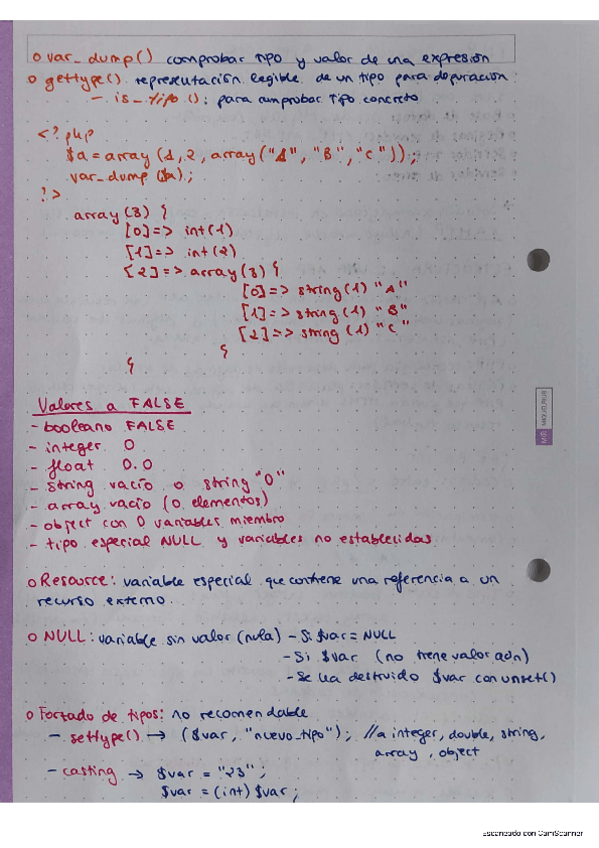 o var_dump() comprobar tipo y valor de una expresión
o gettype() representación legible de un tipo para depuración
- is_tipo(): para comprobar tipo concreto
<?php
$a=array(1,2,array("A","B","C"));
var_dump($a);
?>
array(3) {
[0]=> int(1)
[1]=> int(2)
[2]=> array(3) {
[0]=> string(1) "A"
[1]=> string(1) "B"
[2]=> string(1) "C"
}
}
Valores a FALSE
- booleano FALSE
- integer 0
- float 0.0
- string vacío o string "0"
- array vacío (0 elementos)
- object con 0 variables miembro
- tipo especial NULL y variables no establecidas
o Resource: variable especial que contiene una referencia a un
recurso externo.
o NULL: variable sin valor (nula) - Si $var = NULL
- Si $var (no tiene valor aún)
- Se ha destruido $var con unset()
o Forzado de tipos: no recomendable
- settype() → ($var, "nuevo_tipo"); //a integer, double, string,
array, object
- casting → $var = "23";
$var = (int) $var;
MIQUELRIUS
MR
Escaneado con CamScanner